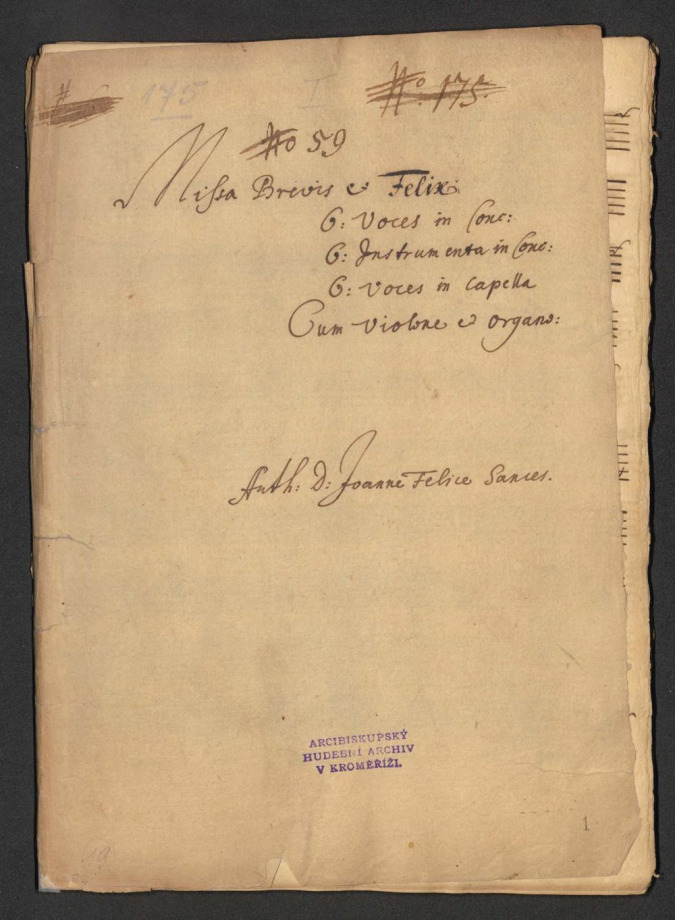 175 I No. 175.
No 59
Missa Brevis et Felix
6: Voces in Conc:
6: Instrumenta in Conc:
6: Voces in Capella
Cum Violone et organo:
Auth: D: Joanne Felice Sances.
ARCIBISKUPSKÝ
HUDEBNÍ ARCHIV
V KROMĚŘÍŽI.
1